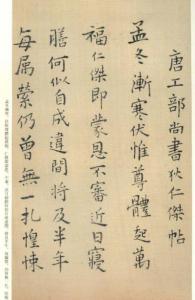 唐工部尚書狄仁傑帖
孟冬漸寒伏惟尊體起萬
福仁傑即蒙恩不審近日寢
膳何似自成違間將及半年
每屬縈仍曾無一扎惶悚